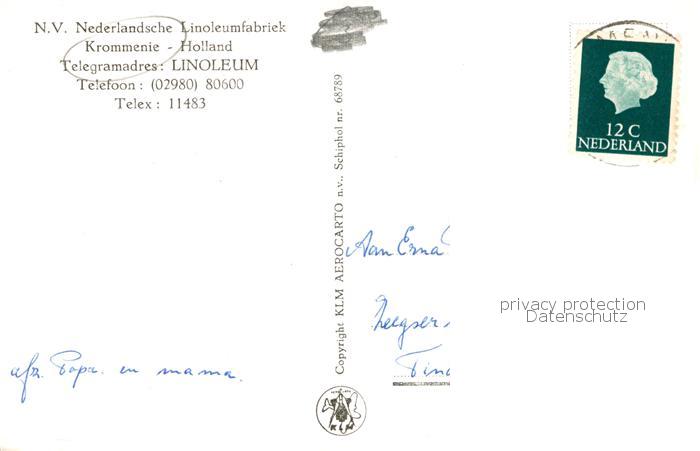 N.V. Nederlandsche Linoleumfabriek
Krommenie - Holland
Telegramadres: LINOLEUM
Telefoon: (02980) 80600
Telex: 11483
afz. Papa en mama.
Copyright KLM AEROCARTO n.v., Schiphol nr. 68789
KLM
12 C
NEDERLAND
Aan Erna
privacy protection
Datenschutz